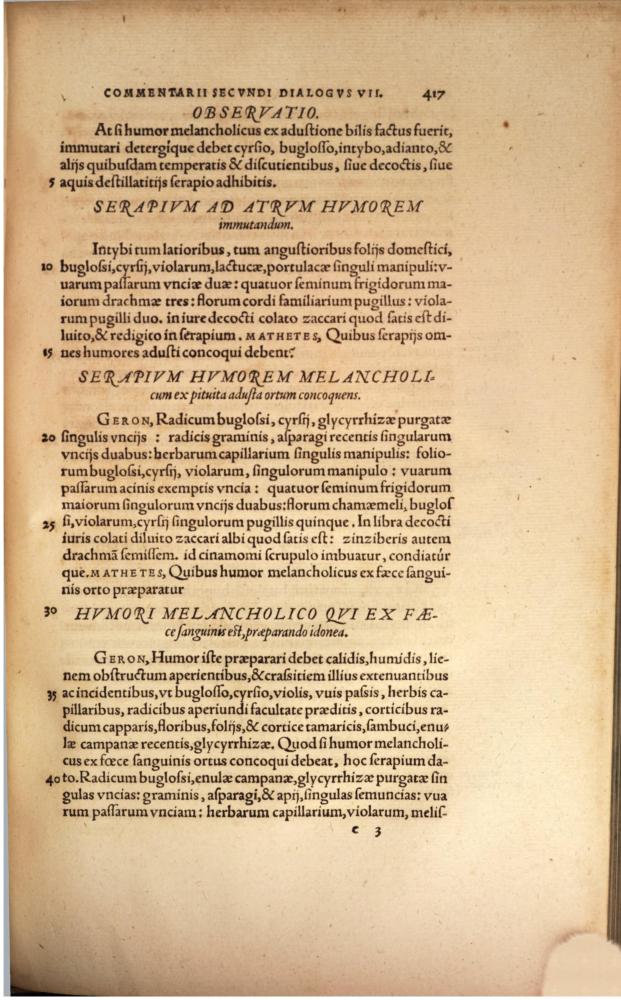 COMMENTARII SECVNDI DIALOGVS VII. 417
OBSERVATIO.
At si humor melancholicus ex adustione bilis factus fuerit,
immutari detergique debet cyrsio, buglosso, intybo, adianto, &
alijs quibusdam temperatis & discutientibus, siue decoctis, siue
5 aquis destillatitijs serapio adhibitis.
SERAPIVM AD ATRVM HVMOREM
immutandum.
Intybi tum latioribus, tum angustioribus folijs domestici,
10 buglossi, cyrsij, violarum, lactucæ, portulacæ singuli manipuli: v-
uarum passarum vnciæ duæ: quatuor seminum frigidorum ma-
iorum drachmæ tres: florum cordi familiarium pugillus: viola-
rum pugilli duo. in iure decocti colato zaccari quod satis est di-
luito, & redigito in serapium. MATHETES, Quibus serapijs om-
15 nes humores adusti concoqui debent?
SERAPIVM HVMOREM MELANCHOLI-
cum ex pituita adusta ortum concoquens.
GERON, Radicum buglossi, cyrsij, glycyrrhizæ purgatæ
20 singulis vncijs : radicis graminis, asparagi recentis singularum
vncijs duabus: herbarum capillarium singulis manipulis: folio-
rum buglossi, cyrsij, violarum, singulorum manipulo : vuarum
passarum acinis exemptis vncia : quatuor seminum frigidorum
maiorum singulorum vncijs duabus: florum chamæmeli, buglos
25 si, violarum, cyrsij singulorum pugillis quinque. In libra decocti
iuris colati diluito zaccari albi quod satis est: zinziberis autem
drachmã semissem. id cinamomi scrupulo imbuatur, condiatúr
que. MATHETES, Quibus humor melancholicus ex fæce sangui-
nis orto præparatur
30 HVMORI MELANCHOLICO QVI EX FÆ-
ce sanguinis est, præparando idonea.
GERON, Humor iste præparari debet calidis, humidis, lie-
nem obstructum aperientibus, & crassitiem illius extenuantibus
35 ac incidentibus, vt buglosso, cyrsio, violis, vuis passis, herbis ca-
pillaribus, radicibus aperiundi facultate præditis, corticibus ra-
dicum capparis, floribus, folijs, & cortice tamaricis, sambuci, enu-
læ campanæ recentis, glycyrrhizæ. Quod si humor melancholi-
cus ex fœce sanguinis ortus concoqui debeat, hoc serapium da-
40 to. Radicum buglossi, enulæ campanæ, glycyrrhizæ purgatæ sin
gulas vncias: graminis, asparagi, & apij, singulas semuncias: vua
rum passarum vnciam: herbarum capillarium, violarum, melis-
c 3